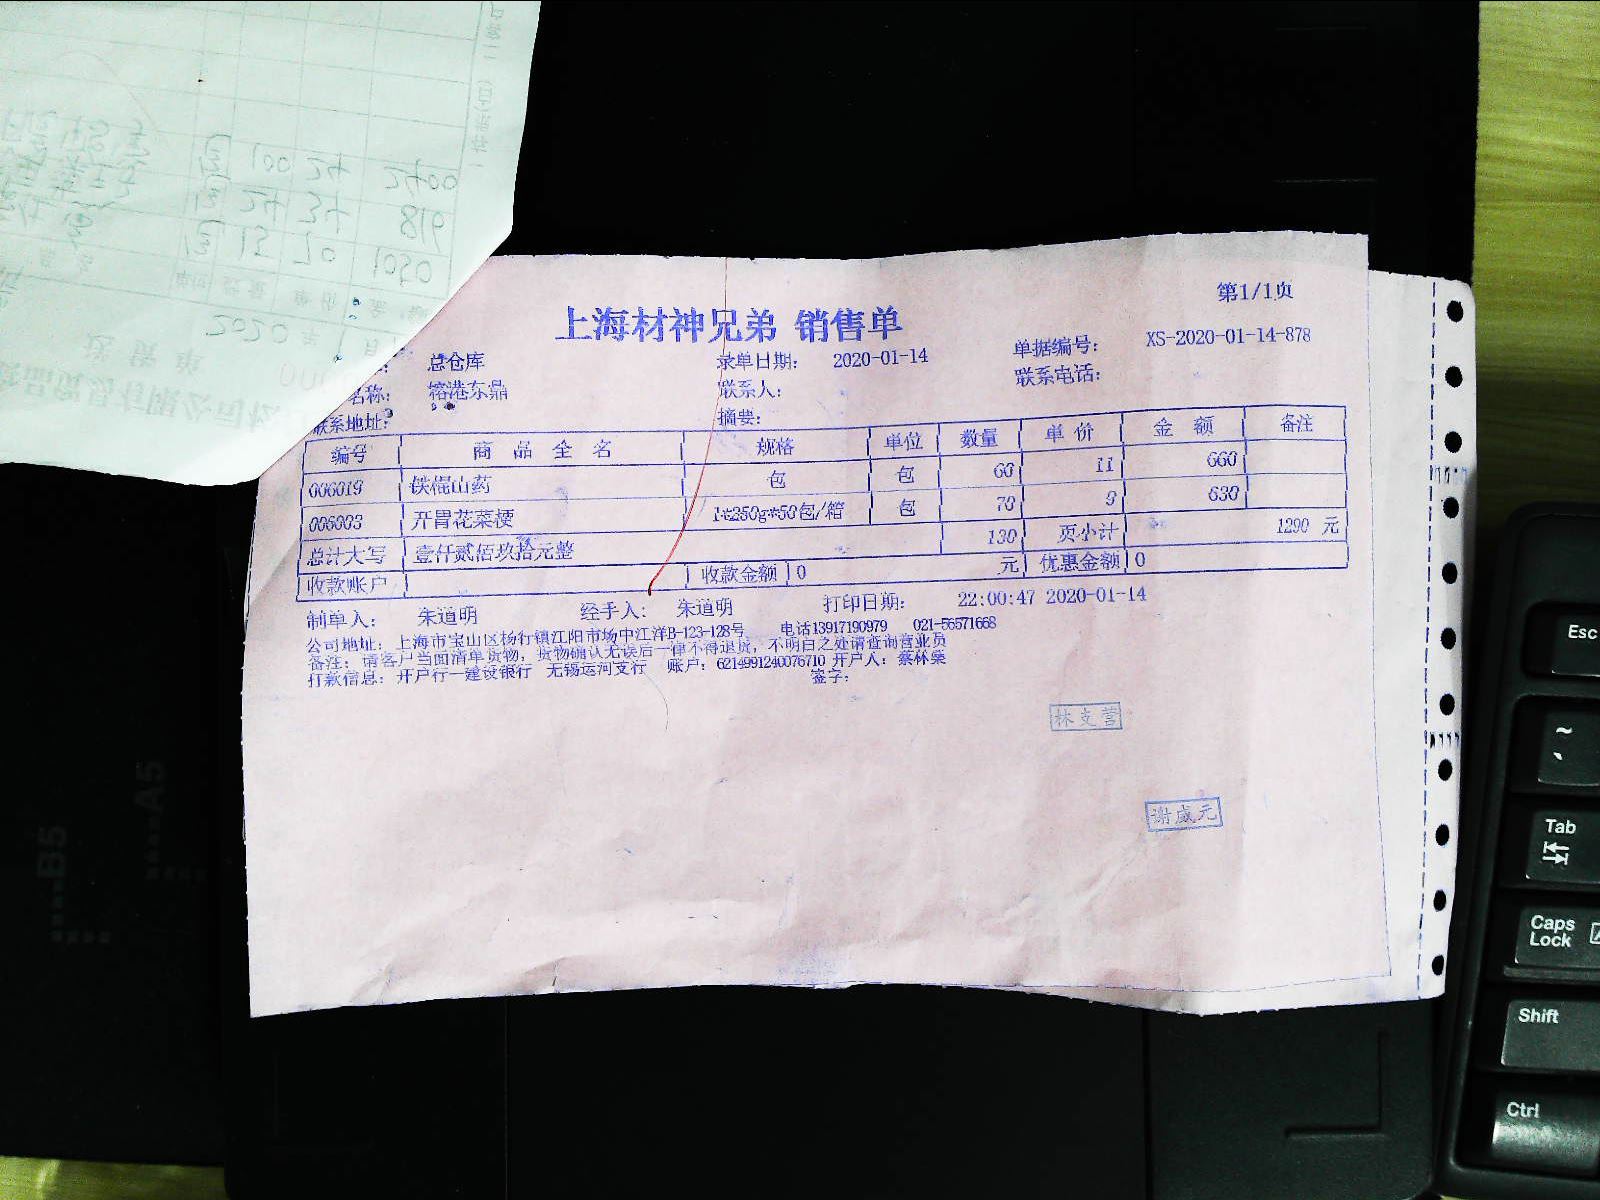 第1/1页
上海材神兄弟 销售单
总仓库 录单日期: 2020-01-14 单据编号: XS-2020-01-14-878
名称: 榕港东鼎 联系人: 联系电话:
联系地址: 摘要:
编号 商品全名 规格 单位 数量 单价 金额 备注
006019 铁棍山药 包 包 60 11 660
005003 开胃花菜梗 1*250g*50包/箱 包 70 9 630
总计大写 壹仟贰佰玖拾元整 130 页小计 1290 元
收款账户 收款金额 0 元 优惠金额 0
制单人: 朱道明 经手人: 朱道明 打印日期: 22:00:47 2020-01-14
公司地址: 上海市宝山区杨行镇江阳市场中江洋B-123-128号 电话13917190979 021-56571668
备注: 请客户当面清单货物, 货物确认无误后一律不得退货, 不明白之处请查询营业员
打款信息: 开户行一建设银行 无锡运河支行 账户: 6214991240076710 开户人: 蔡林荣
签字:
林支营
谢成元
2020 年 1 月
15 70 1050
819
100 24 2400
B5
A5
Esc
~
Tab
Caps Lock
Shift
Ctrl